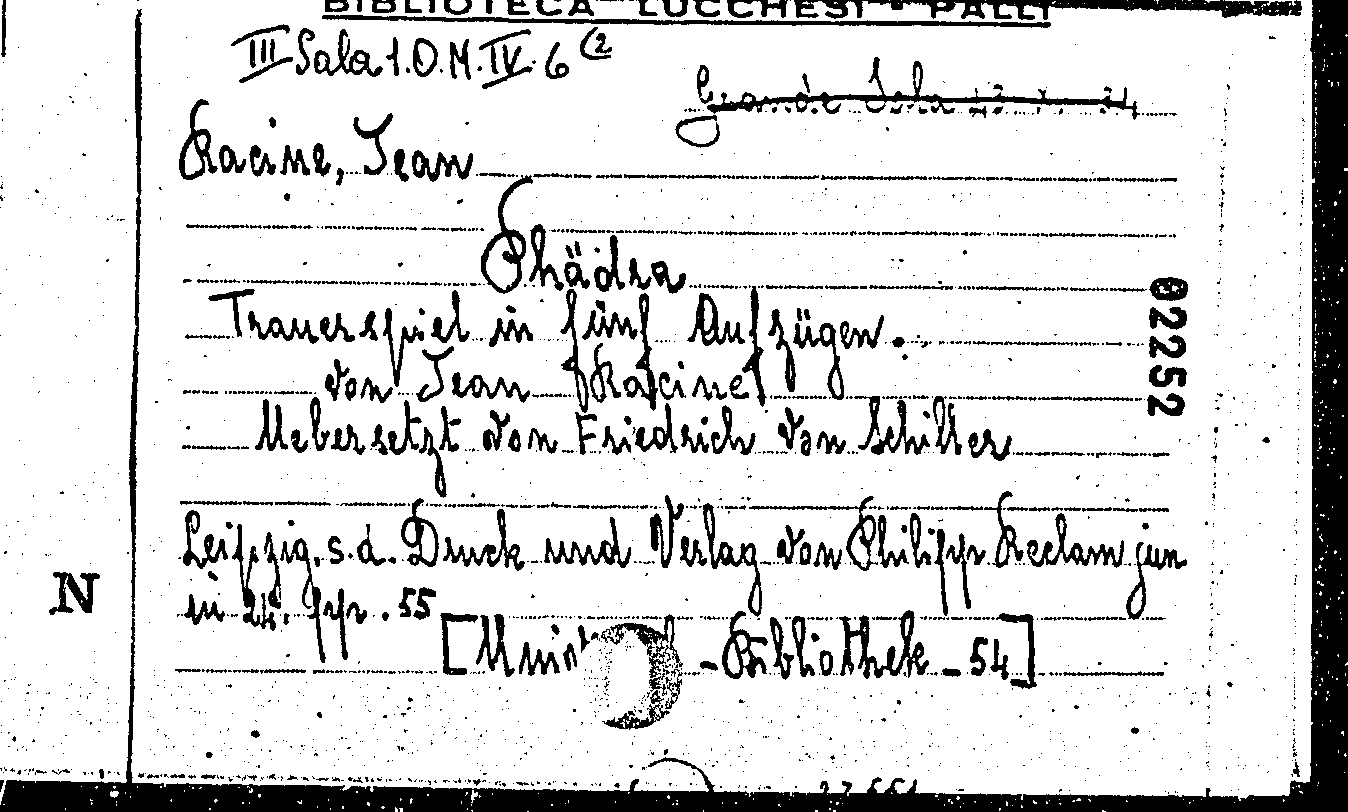 BIBLIOTECA LUCCHESI - PALLI
III Sala 1.O.M.IV.6 (2
Grande Sala
Racine, Jean
Phädra
Trauerspiel in fünf Aufzügen.
von Jean Racine
Uebersetzt von Friedrich von Schiller
02252
Leipzig. s.d. Druck und Verlag von Philipp Reclam jun
in 24. pp. 55
N
-Bibliothek - 54]